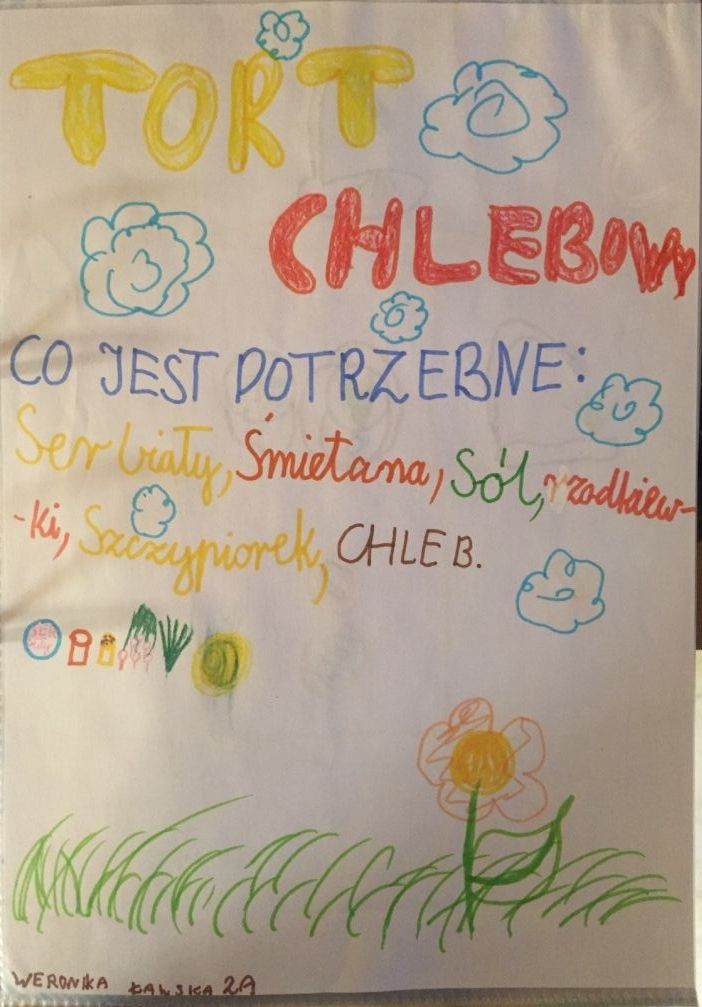 TORT
CHLEBOWY
CO JEST POTRZEBNE:
Ser biały, Śmietana, Sól, rzodkiew-
-ki, Szczypiorek, CHLEB.
SER
biały
WERONIKA ŁAWSKA 2A